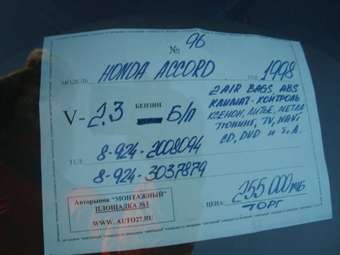 № 96
МОДЕЛЬ HONDA ACCORD ГОД 1998
V- 2,3 БЕНЗИН Б/П
2 AIR BAGS, ABS
КЛИМАТ-КОНТРОЛЬ
КСЕНОН, ЛИТЬЕ, МЕТЛА
ТЮНИНГ, TV, NAVI
CD, DVD И Т.Д.
ТЕЛ 8-924-2008094
8-924-3037879
Авторынок "МОНТАЖНЫЙ"
ПЛОЩАДКА №1
WWW. AUTO27.RU
ЦЕНА 255 000 руб
ТОРГ